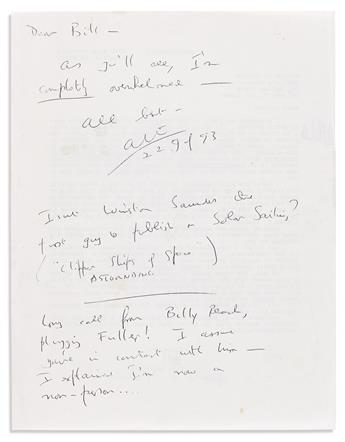 Dear Bill —
as you'll see, I'm
completely overwhelmed —
all best —
22 9 93
Isn't Winston Saunders the
first guy to publish on Solar Sailing?
("Clipper Ships of Space"
ASTOUNDING)
Long call from Billy
plugging Fuller! I assume
you're in contact with him —
I explained I'm now a
non-person....